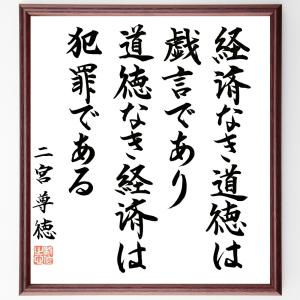 経済なき道徳は
戯言であり
道徳なき経済は
犯罪である
二宮尊徳